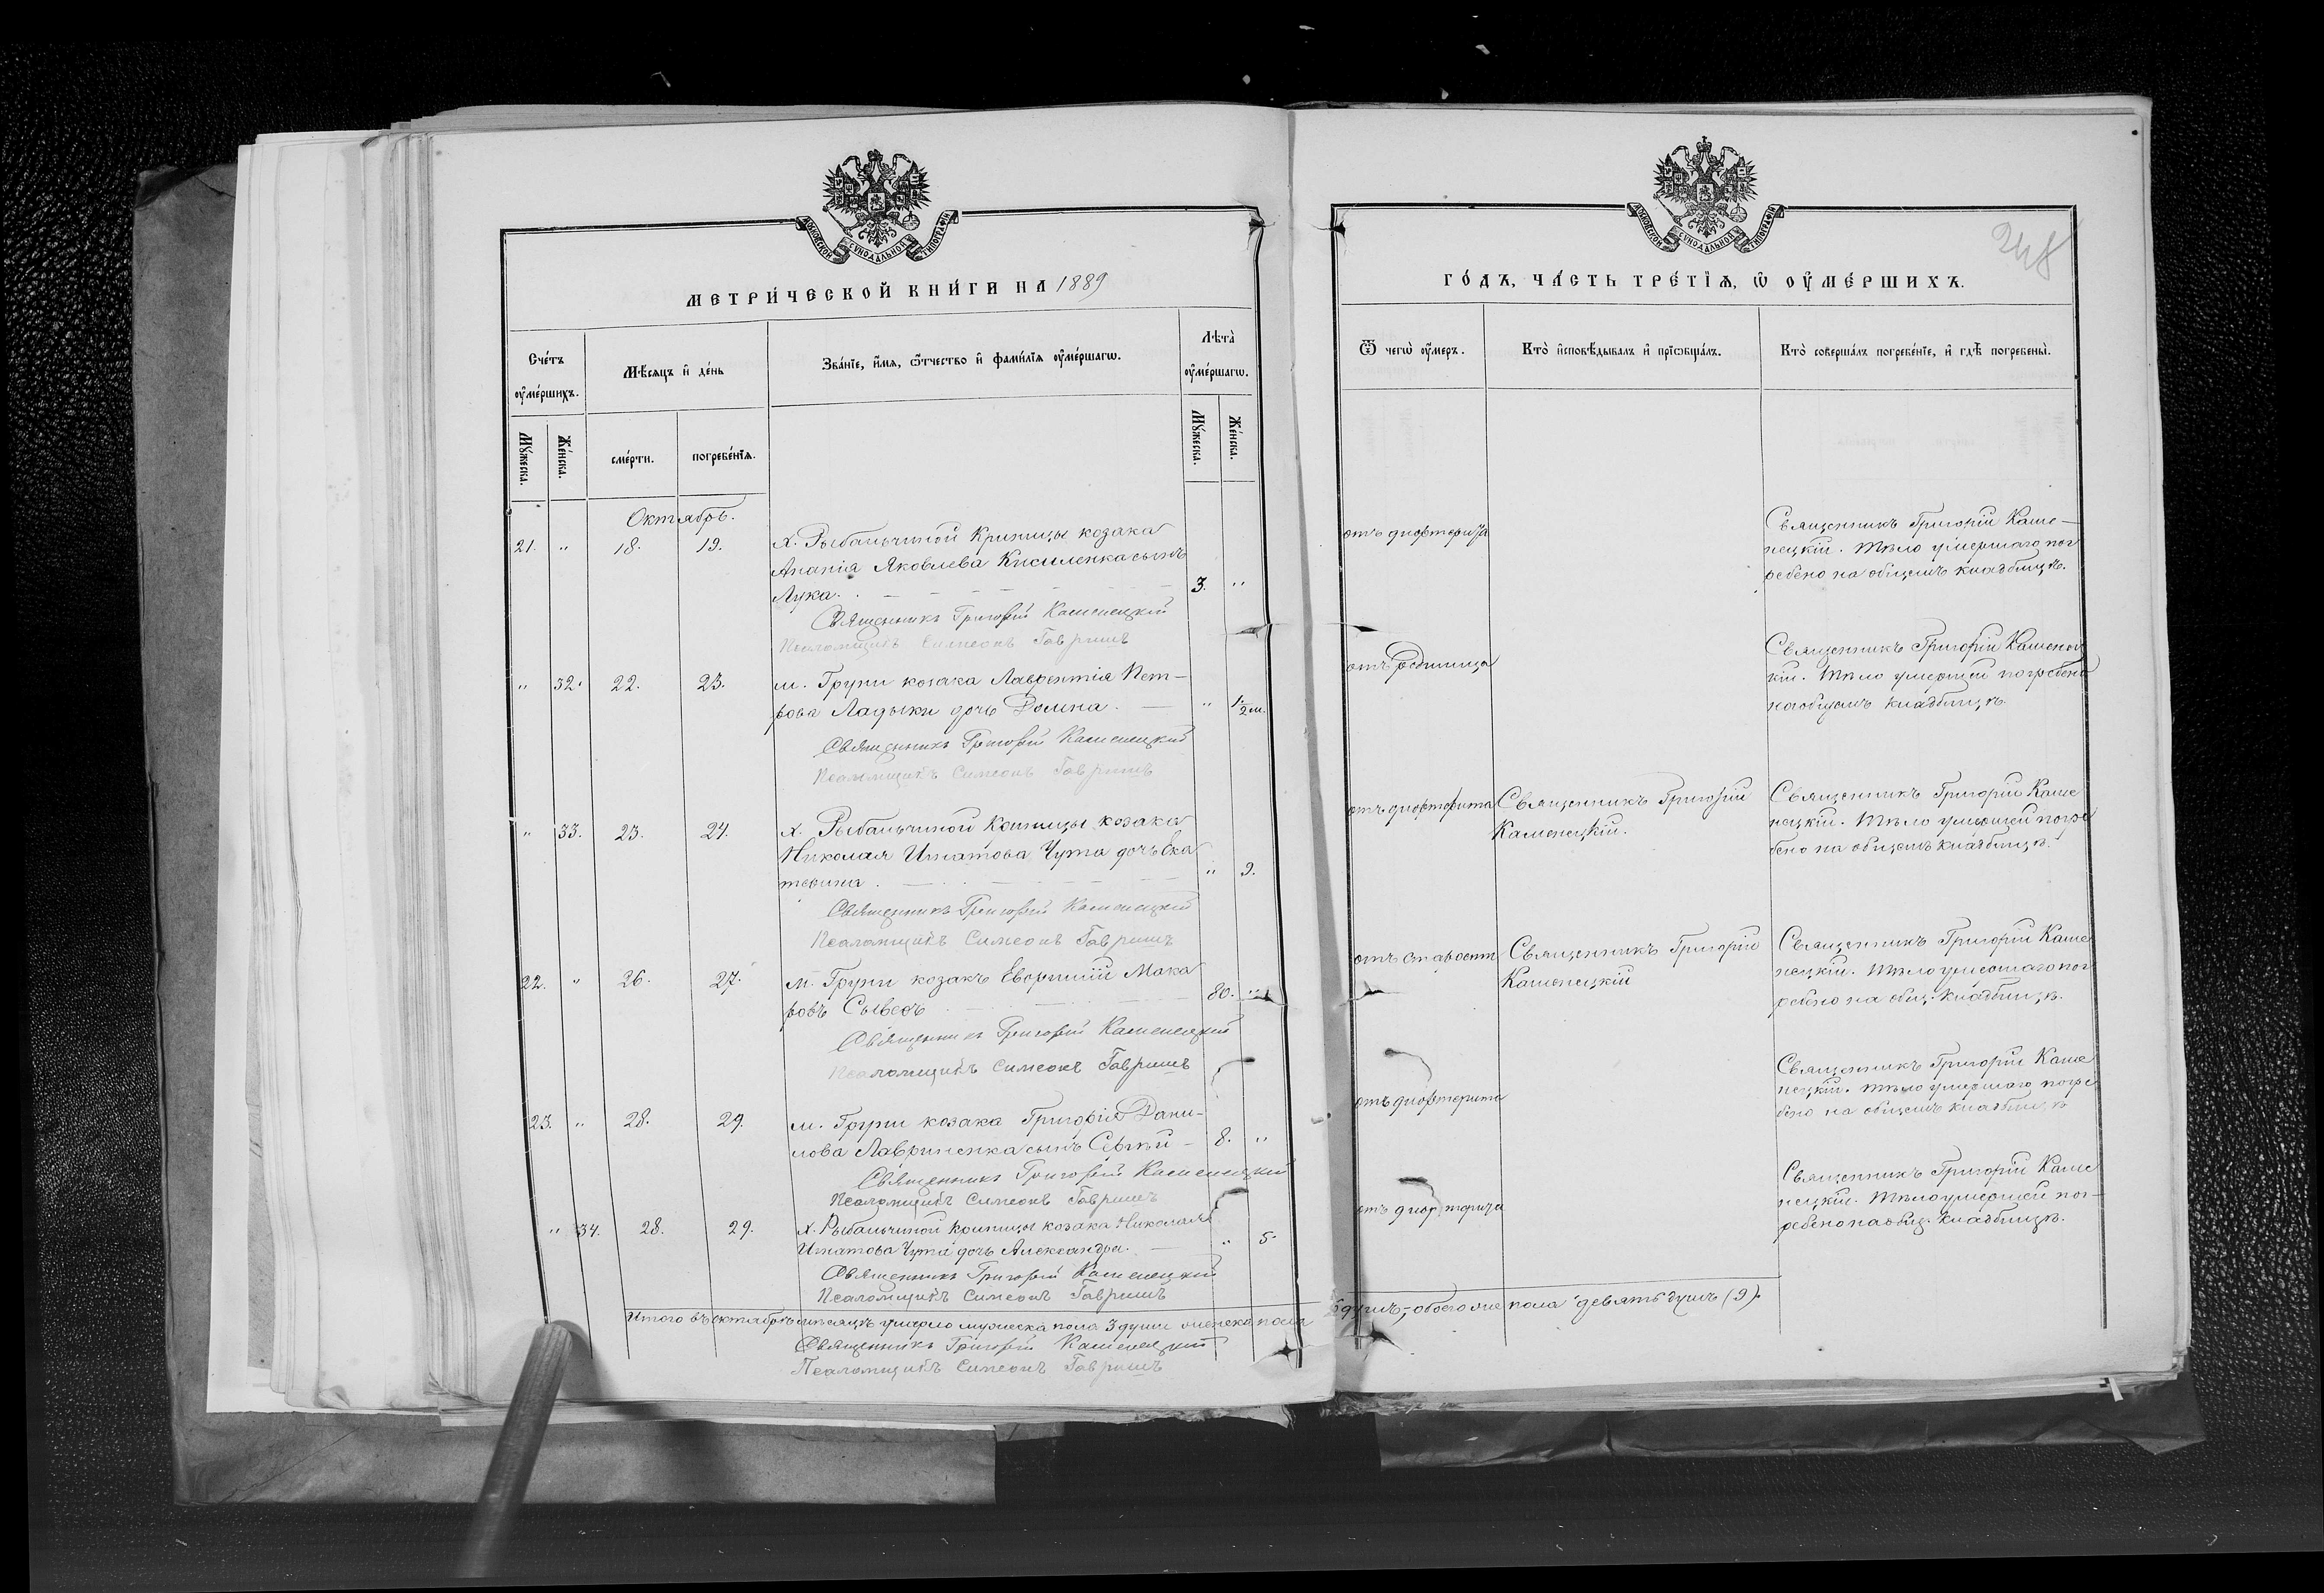 МОСКОВСКОЙ СѴНОДАЛЬНОЙ ТИПОГРАФІИ
МЕТРИ́ЧЕСКОЙ КНИ́ГИ НА 1889
Сче́тъ оу҆ме́ршихъ.
Мѣ́сяцъ и҆ де́нь
Зва́нїе, и҆́мѧ, ѻ҆́тчество и҆ фами́лїѧ оу҆ме́ршагѡ.
Лѣта̀ оу҆ме́ршагѡ.
Мꙋ́жеска.
Же́нска.
сме́рти.
погребе́нїѧ.
Мꙋ́жеска.
Же́нска.
Октябрь.
21. " 18. 19. х. Рыбальчиной Криницы козака
Ананія Яковлева Кисиленка сынъ
Лука. 3. "
Священникъ Григорій Каменецкій
Псаломщикъ Симеонъ Гавришъ
" 32. 22. 23. м. Груни козака Лаврентія Пет-
рова Ладыки дочь Домна. " 1/2 м.
Священникъ Григорій Каменецкій
Псаломщикъ Симеонъ Гавришъ
" 33. 23. 24. х. Рыбальчиной Криницы козака
Николая Игнатова Чута дочь Ека
терина. " 9.
Священникъ Григорій Каменецкій
Псаломщикъ Симеонъ Гавришъ
22. " 26. 27. м. Груни козакъ Евфимій Мака
ровъ 80. "
Священникъ Григорій Каменецкій
Псаломщикъ Симеонъ Гавришъ
23. " 28. 29. м. Груни козака Григорія Дани-
лова Лавриненка сынъ Сергій 8. "
Священникъ Григорій Каменецкій
Псаломщикъ Симеонъ Гавришъ
" 34. 28. 29. х. Рыбальчиной Криницы козака Николая
Игнатова Чута дочь Александра. " 5.
Священникъ Григорій Каменецкій
Псаломщикъ Симеонъ Гавришъ
Итого въ октябрѣ мѣсяцѣ умерло мужеска пола 3 души женска пола
Священникъ Григорій Каменецкій
Псаломщикъ Симеонъ Гавришъ
МОСКОВСКОЙ СѴНОДАЛЬНОЙ ТИПОГРАФІИ
248
ГО́ДЪ, ЧА́СТЬ ТРЕ́ТЇѦ, Ѡ҆ ОУ҆МЕ́РШИХЪ.
Ѿ чегѡ̀ оу҆́меръ.
Кто̀ и҆сповѣ́дывалъ и҆ прїѡбща́лъ.
Кто̀ соверша́лъ погребе́нїе, и҆ гдѣ̀ погребены̀.
отъ дифтерита
Священникъ Григорій Каме-
нецкій. Тѣло умершаго пог
ребено на общемъ кладбищѣ.
отъ родимца
Священникъ Григорій Каменец
кій. Тѣло умершей погребено
на общемъ кладбищѣ.
отъ дифтерита Священникъ Григорій
Каменецкій.
Священникъ Григорій Каме
нецкій. Тѣло умершей погре
бено на общемъ кладбищѣ.
отъ старости Священникъ Григорій
Каменецкій
Священникъ Григорій Каме
нецкій. Тѣло умершаго пог
ребено на общ. кладбищѣ.
отъ дифтерита
Священникъ Григорій Каме
нецкій. Тѣло умершаго погре
бено на общемъ кладбищѣ
отъ дифтерита
Священникъ Григорій Каме
нецкій. Тѣло умершей пог-
ребено на общ. кладбищѣ.
6 душъ, обоего же пола девять душъ (9).